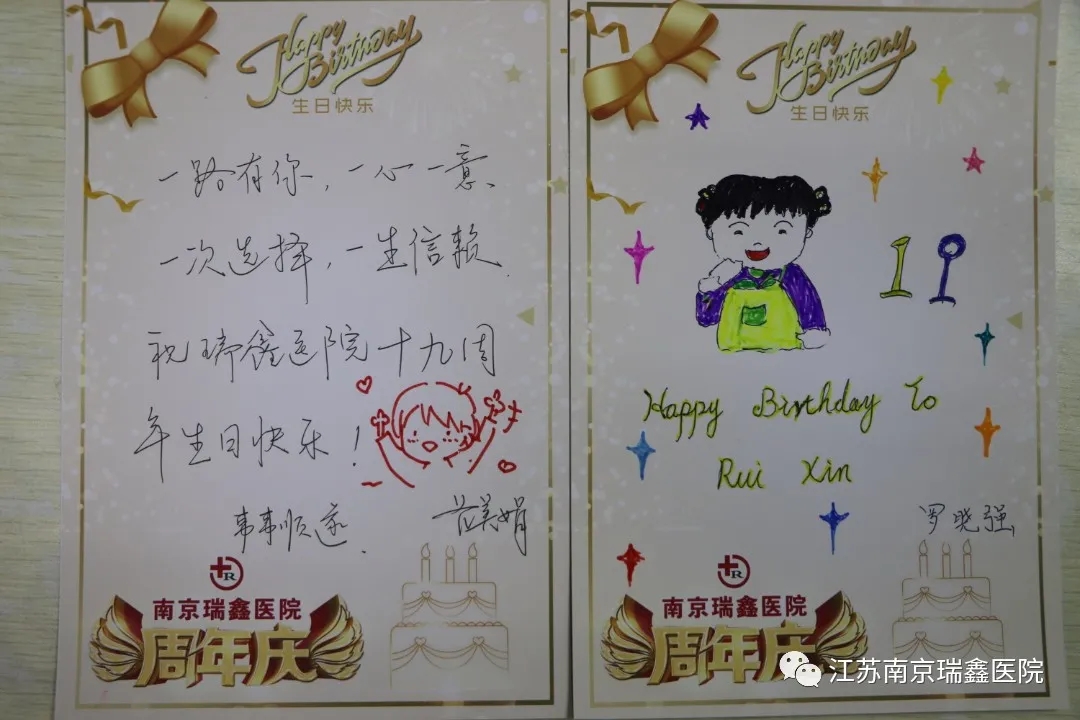 Happy
Birthday
生日快乐
一路有你，一心一意、
一次选择，一生信赖.
祝瑞鑫医院十九周
年生日快乐！
事事顺遂.
范美娟
R
南京瑞鑫医院
周年庆
Happy
Birthday
生日快乐
19
Happy Birthday to
Rui Xin
罗晓强
R
南京瑞鑫医院
周年庆
江苏南京瑞鑫医院